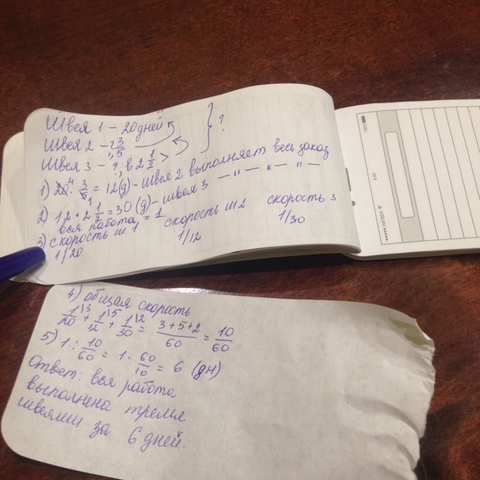 Швея 1 - 20 дней
Швея 2 - ? 3/5
Швея 3 - ?, в 2 1/2 >
} ?
1) 20 · 3/5 = 12 (д) - швея 2 выполняет весь заказ
2) 12 · 2 1/2 = 30 (д) - швея 3 — " — " — " —
вся работа = 1
3) скорость ш 1 скорость ш 2 скорость 3
1/20 1/12 1/30
4) общая скорость
1/20 \3 + 1/12 \5 + 1/30 \2 = 3+5+2/60 = 10/60
5) 1 : 10/60 = 1 · 60/10 = 6 (дн)
Ответ: вся работа
выполнена тремя
швеями за 6 дней.